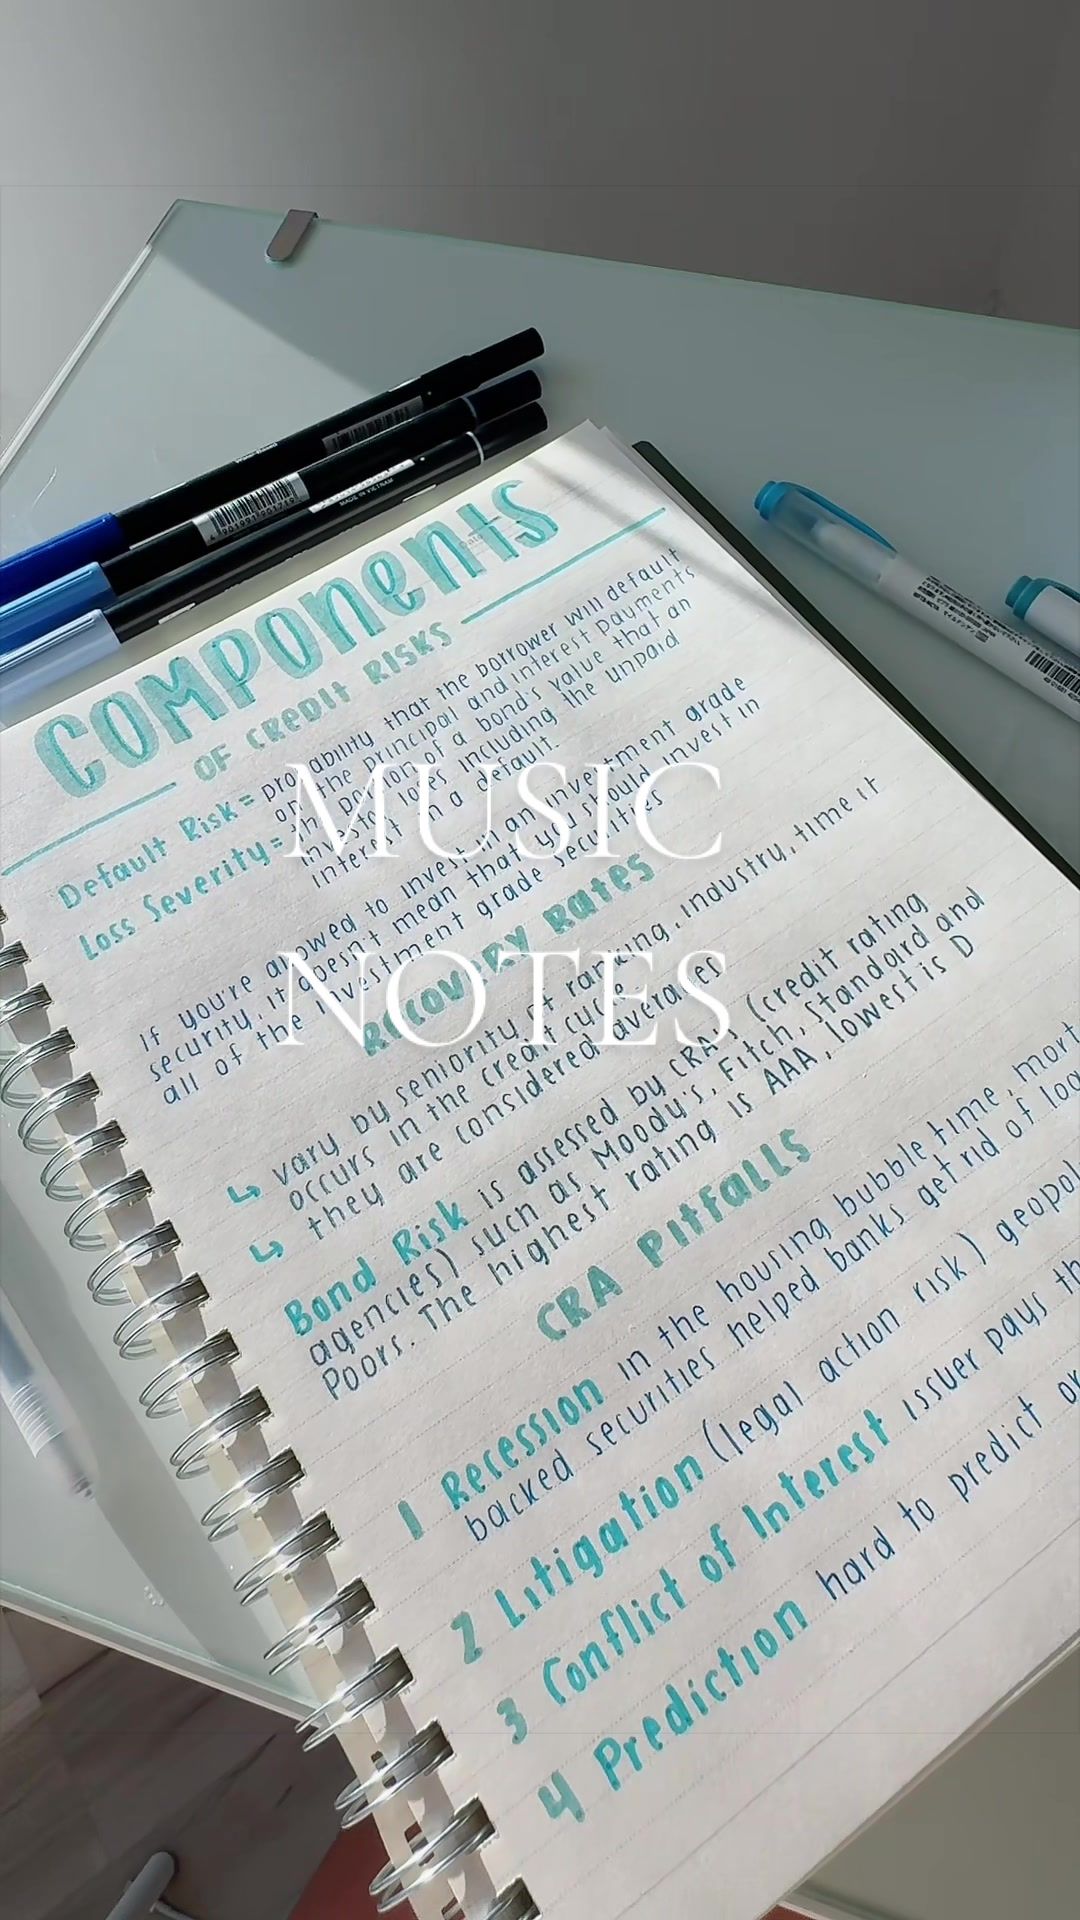 MADE IN VIETNAM
4 901991 901719
COMPONENTS
OF CREDIT RISKS
Default Risk = probability that the borrower will default
on the principal and interest payments
Loss Severity = the portion of a bond's value that an
investor loses including the unpaid
interest in a default.
If you're allowed to invest in an investment grade
security, it doesn't mean that you should invest in
all of the investment grade securities
RECOVERY RATES
↳ vary by seniority of ranking, industry, time it
occurs in the credit cycle
↳ they are considered averages
Bond Risk is assessed by CRA's (credit rating
agencies) such as Moody's, Fitch, Standard and
Poors. The highest rating is AAA, lowest is D
CRA PITFALLS
1 Recession in the housing bubble time, mort
backed securities helped banks get rid of loa
2 Litigation (legal action risk) geopol
3 Conflict of Interest issuer pays th
4 Prediction hard to predict or
MUSIC
NOTES